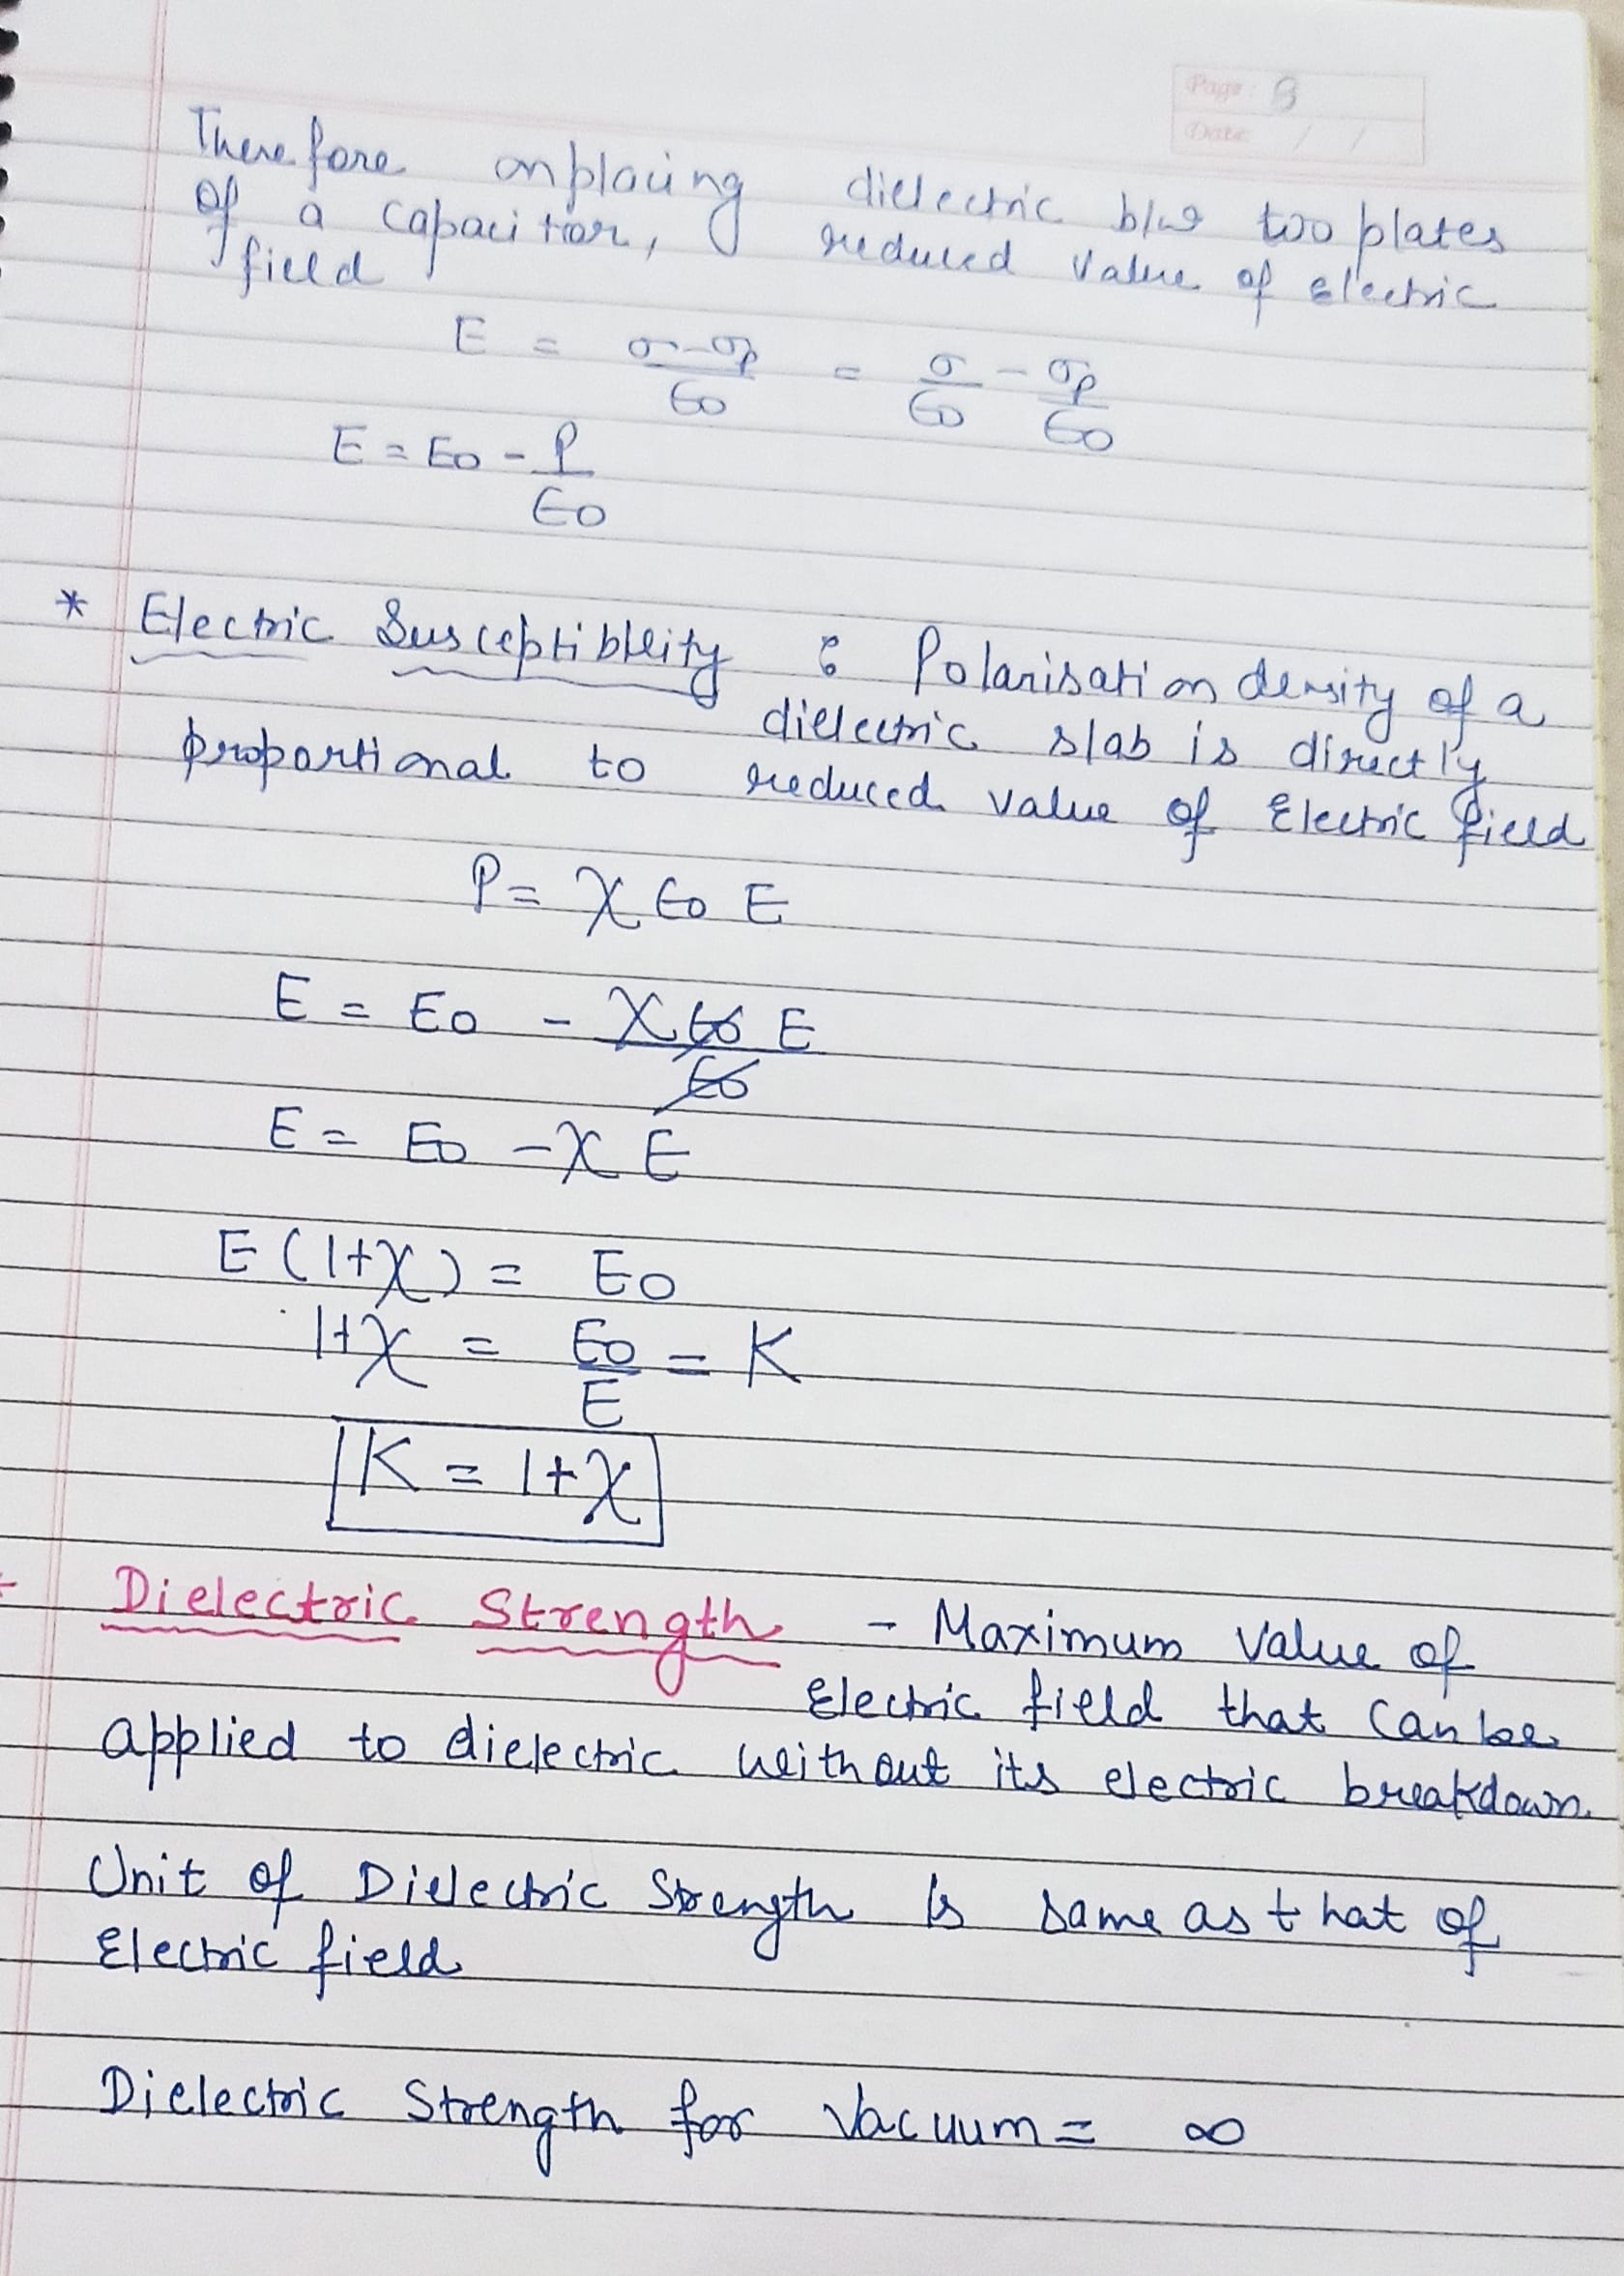 Page: 8
Date / /
Therefore on placing dielectric b/w two plates
of a capacitor, reduced value of electric
field
E = σ-σp/ε0 = σ/ε0 - σp/ε0
E = E0 - P/ε0
* Electric Susceptiblity : Polarisation density of a
dielectric slab is directly
proportional to reduced value of Electric field
P = χ ε0 E
E = E0 - χ ε0 E/ε0
E = E0 - χ E
E (1+χ) = E0
1+χ = E0/E = K
K = 1+χ
Dielectric Strength - Maximum Value of
Electric field that can be
applied to dielectric without its electric breakdown.
Unit of Dielectric Strength is same as that of
Electric field
Dielectric Strength for Vacuum = ∞